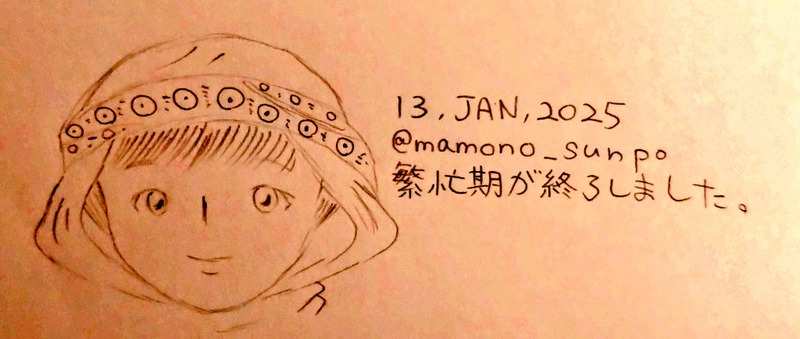 13, JAN, 2025
@mamono_sunpo
繁忙期が終了しました。